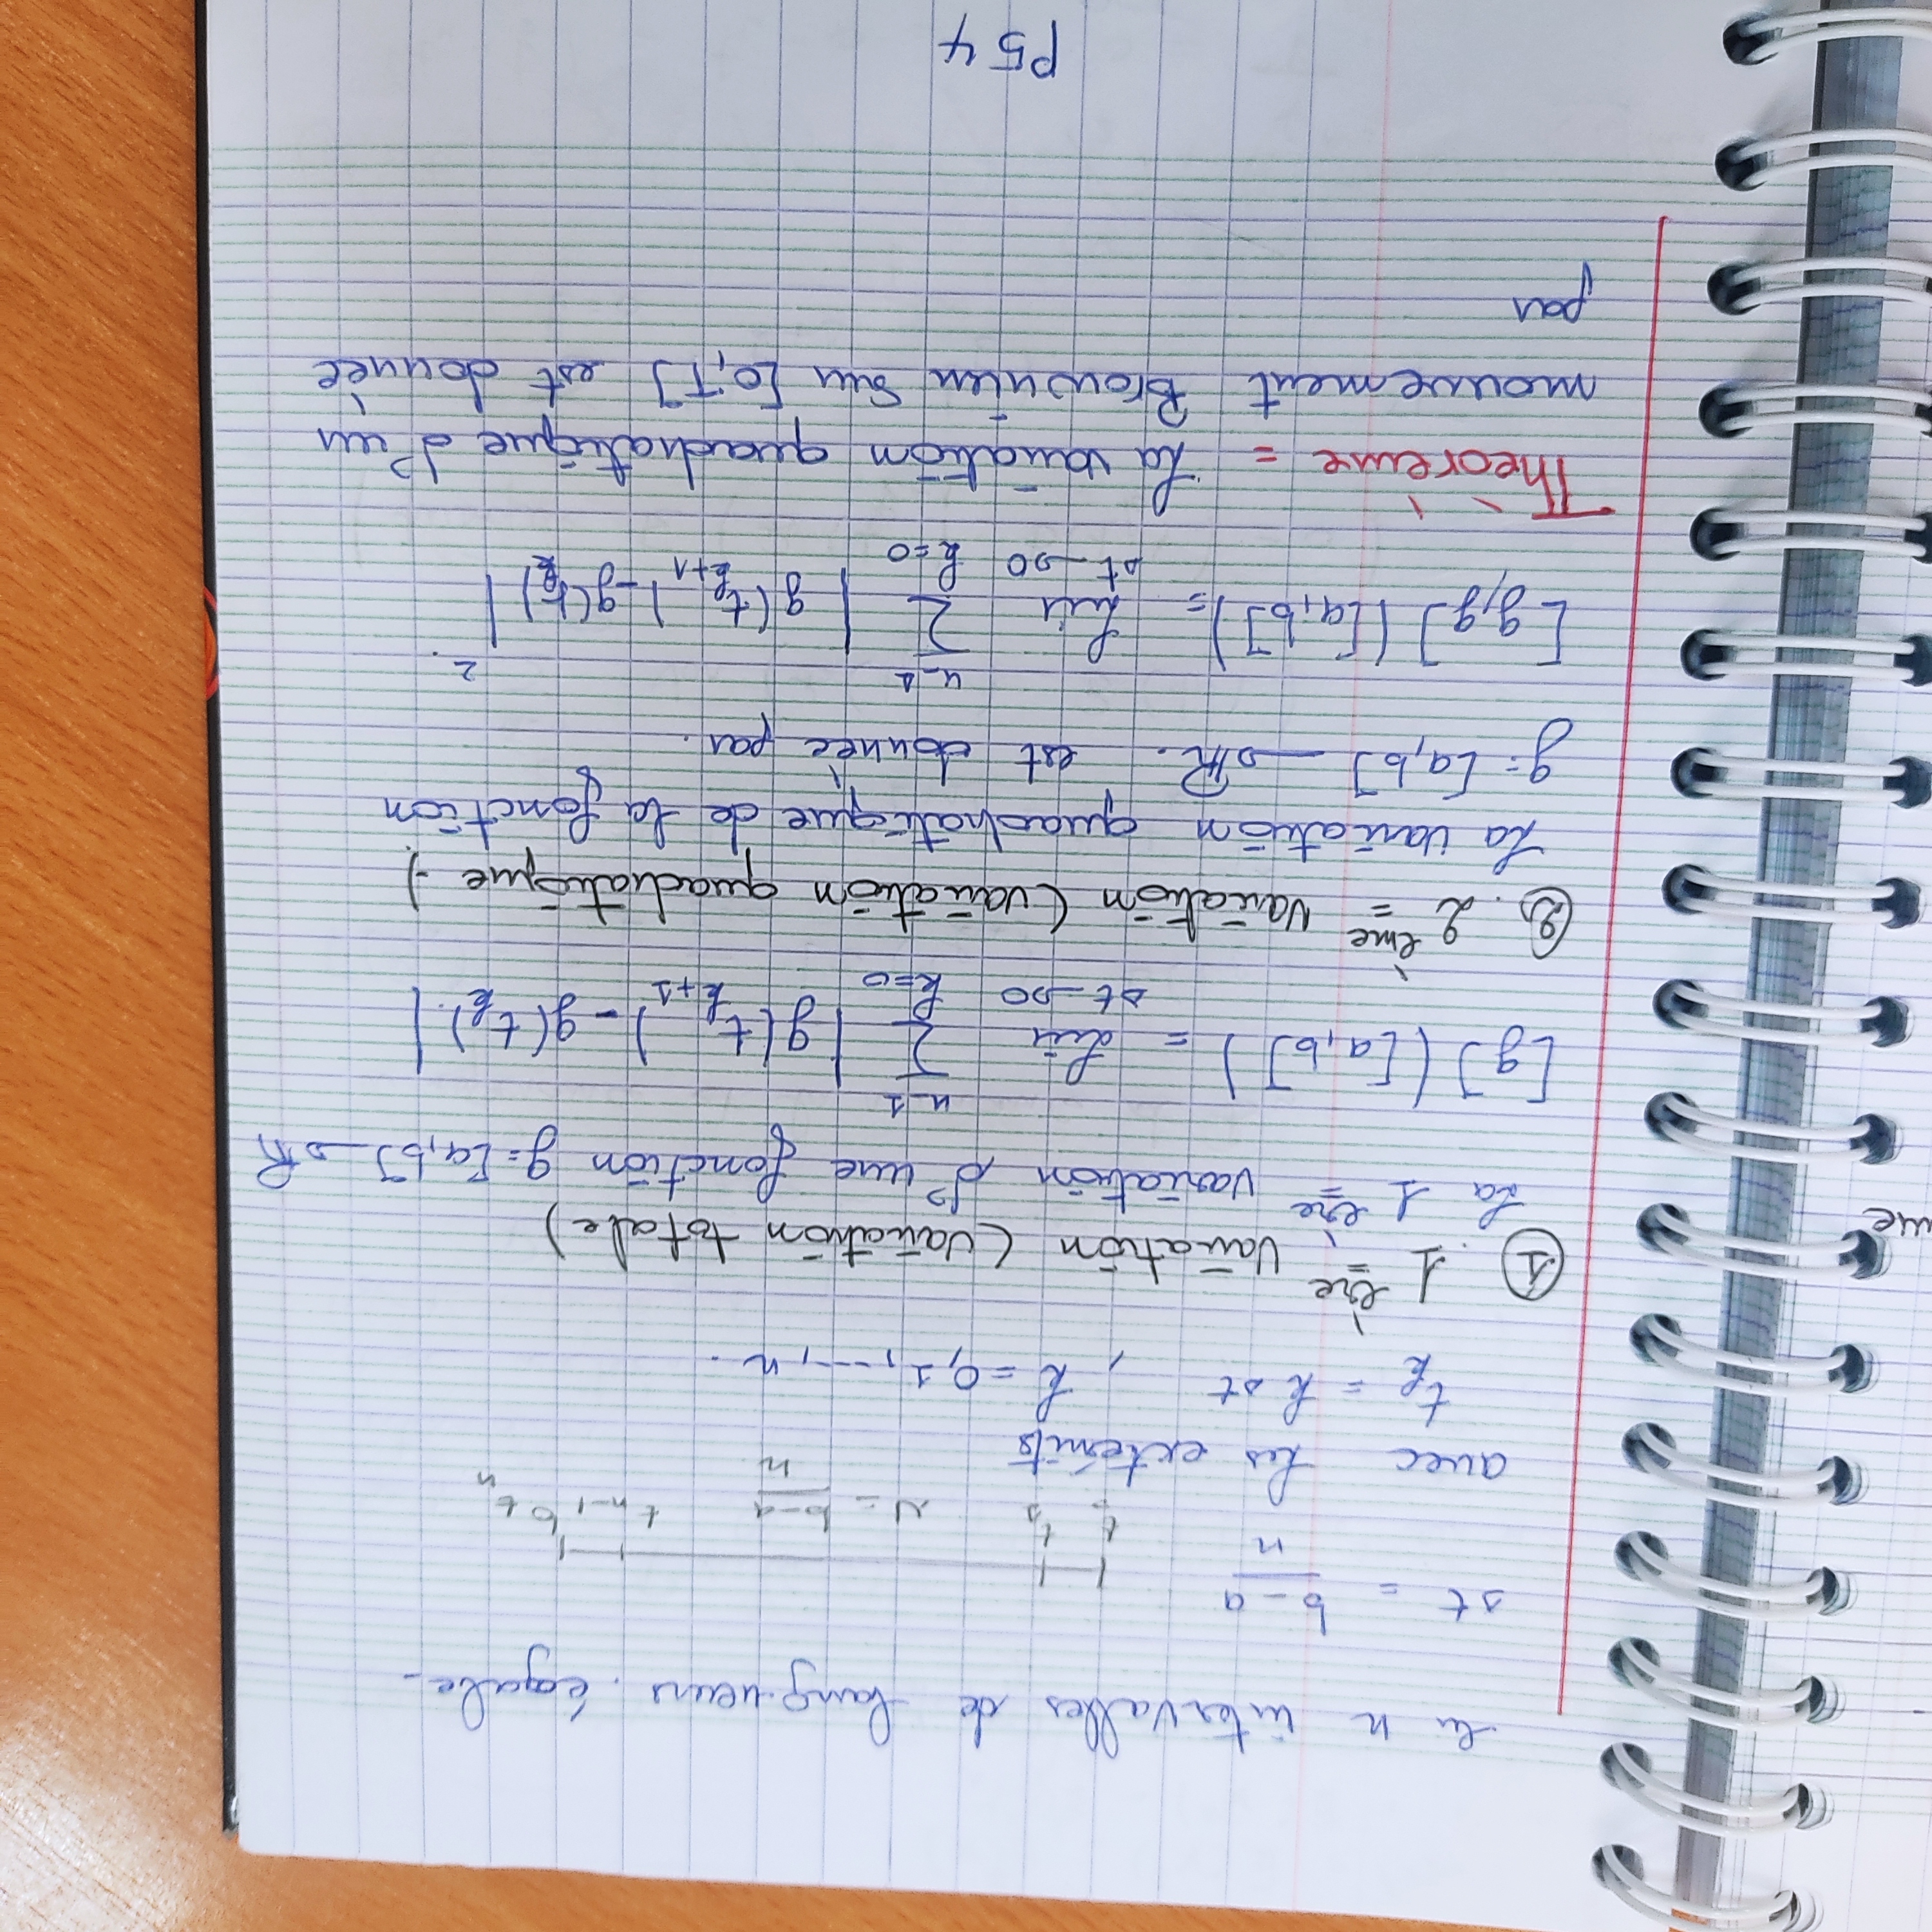 en n intervalles de langueurs égale.
Δt = b-a / n
t t₁ Δt = b-a / n tₙ₋₁ b tₙ
avec les extémits
t_k = k Δt , k = 0, 1, ..., n.
① 1ère Variation (variation totale)
La 1ère variation d'une fonction g: [a,b] → ℝ
[g]([a,b]) = lim_{Δt→0} Σ_{k=0}^{n-1} | g(t_{k+1}) - g(t_k) |
②. 2ème variation (variation quadratique.)
La variation quadratique de la fonction
g: [a,b] → ℝ. est donnée par.
[g,g]([a,b]) = lim_{Δt→0} Σ_{k=0}^{n-1} | g(t_{k+1}) - g(t_k) |².
Théorème = La variation quadratique d'un
mouvement Brownien sur [0,T] est donnée
par
P54